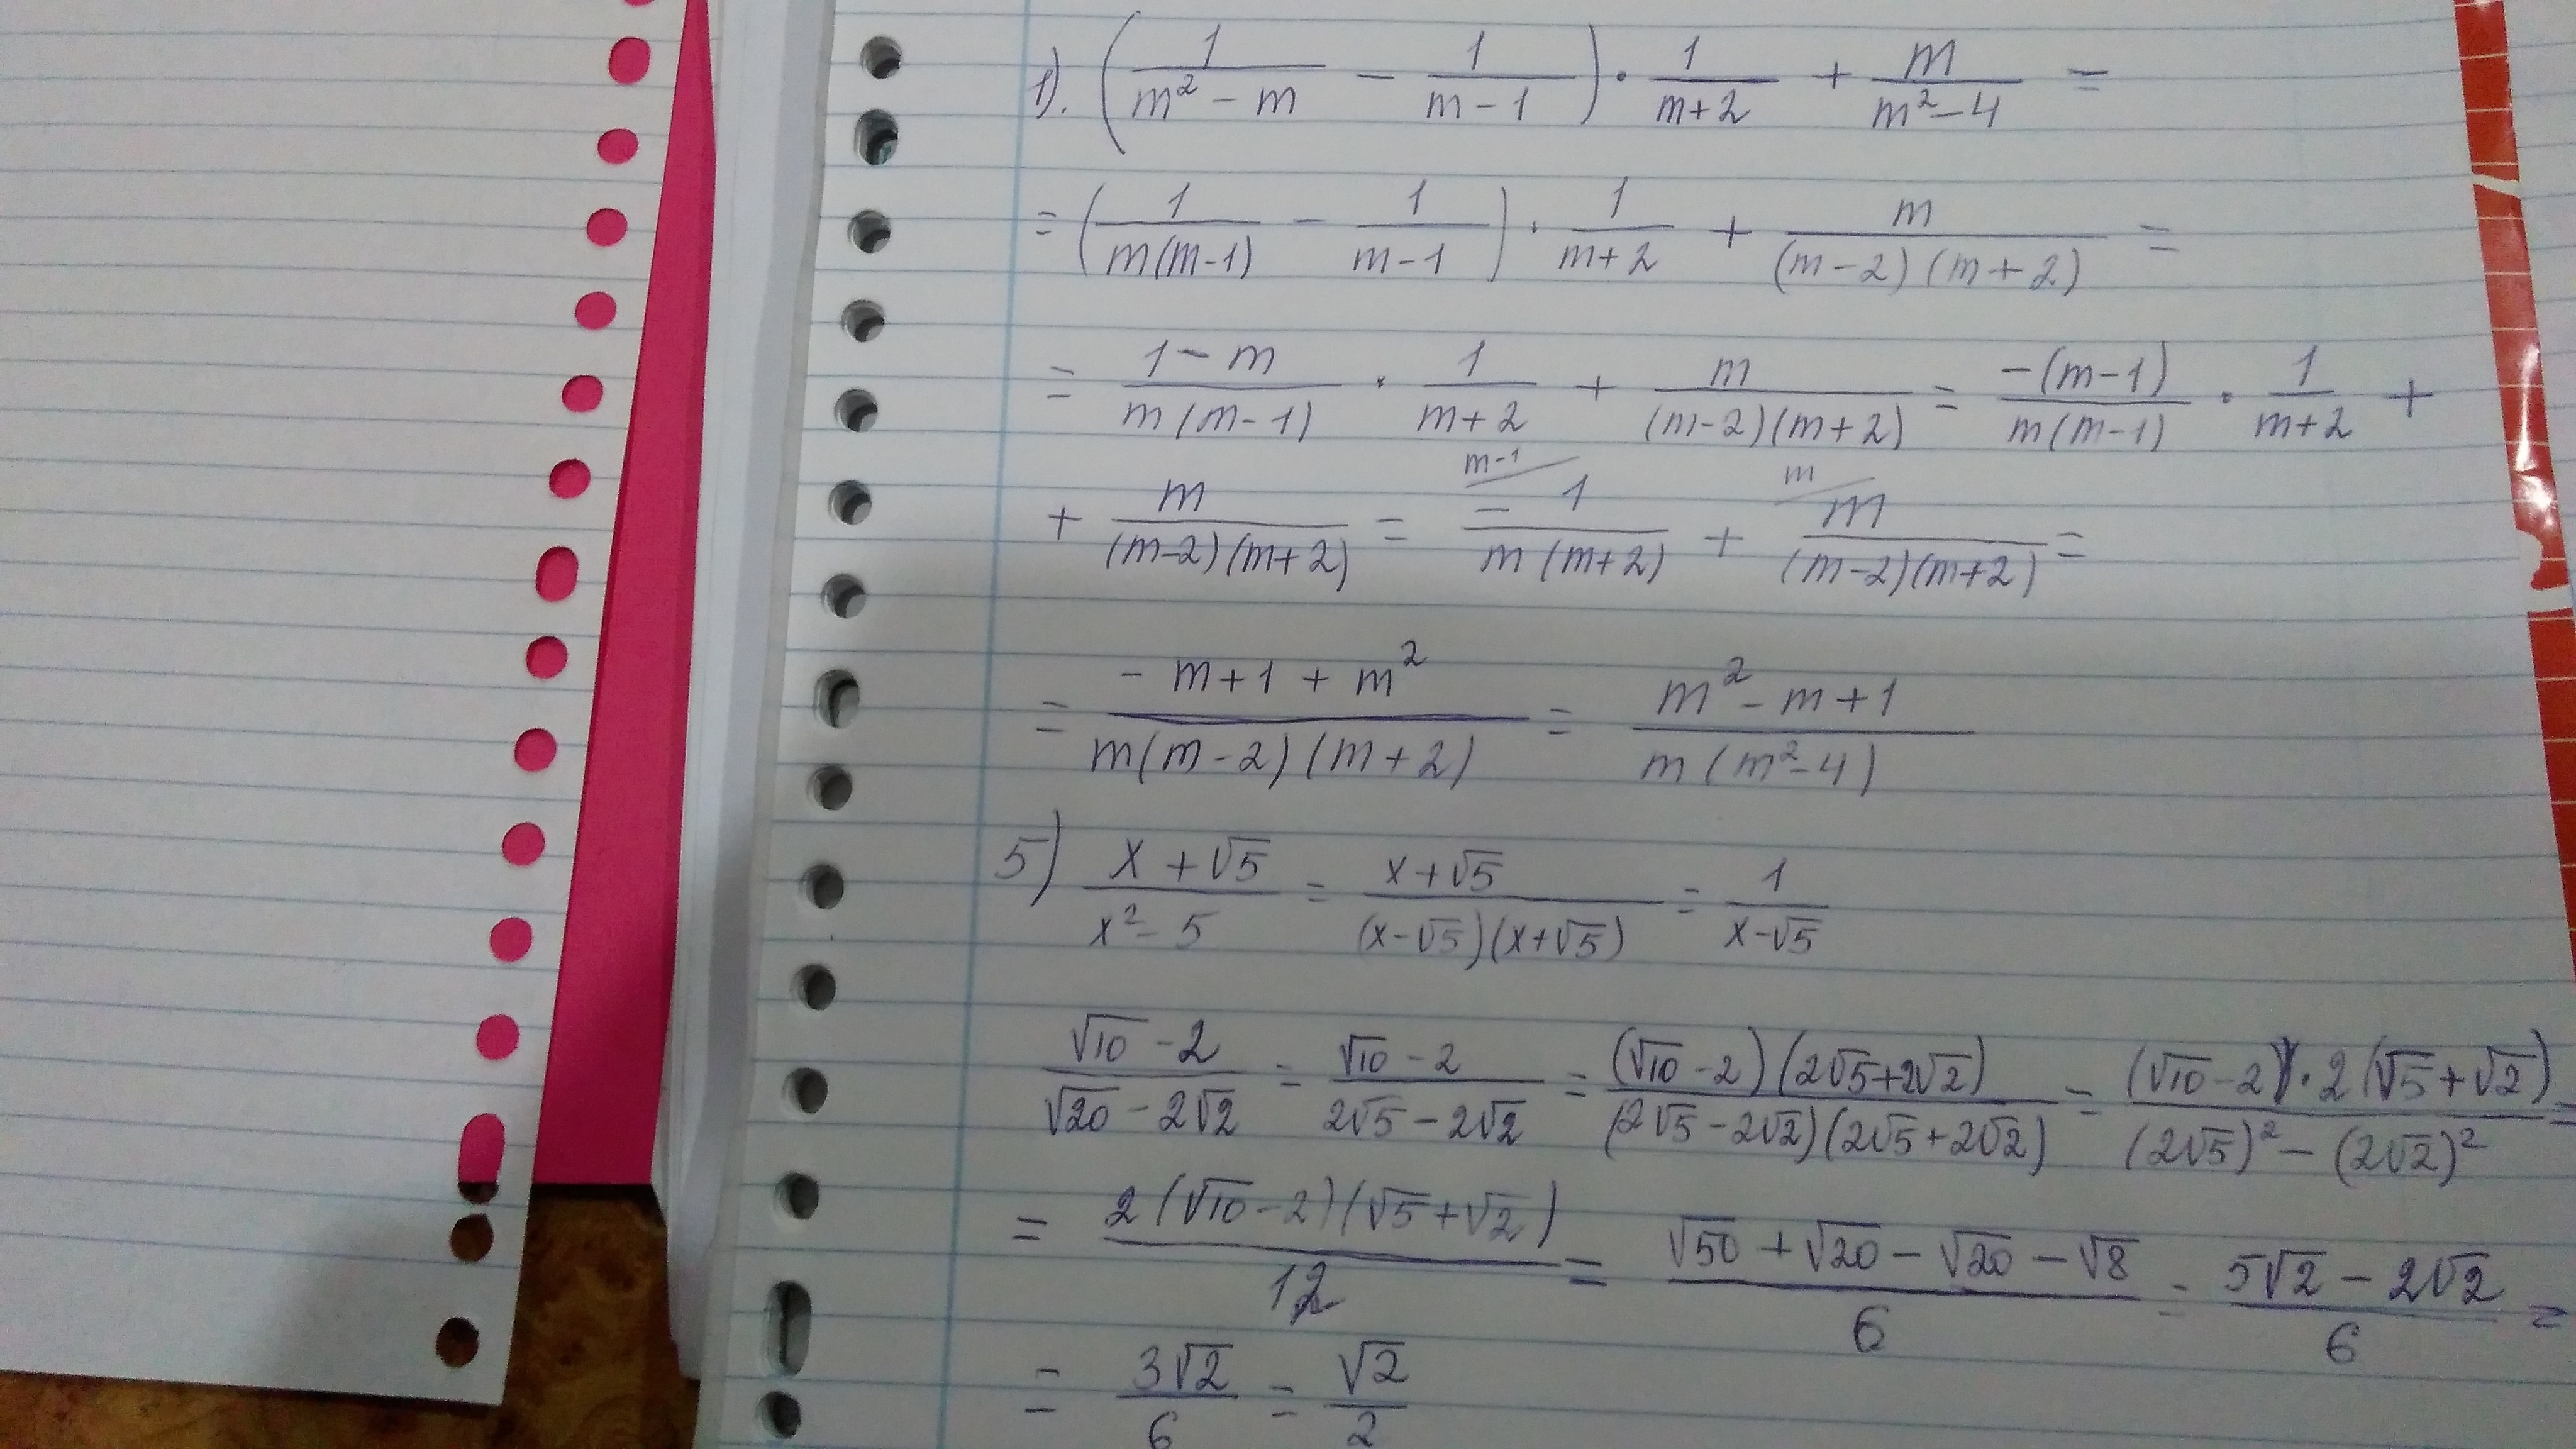 1). (1/(m² - m) - 1/(m - 1)) · 1/(m+2) + m/(m² - 4) =
= (1/(m(m-1)) - 1/(m-1)) · 1/(m+2) + m/((m-2)(m+2)) =
= (1-m)/(m(m-1)) · 1/(m+2) + m/((m-2)(m+2)) = -(m-1)/(m(m-1)) · 1/(m+2) +
+ m/((m-2)(m+2)) = m-1/ -1/(m(m+2)) + m/ m/((m-2)(m+2)) =
= (-m+1+m²)/(m(m-2)(m+2)) = (m²-m+1)/(m(m²-4))
5) (x+√5)/(x²-5) = (x+√5)/((x-√5)(x+√5)) = 1/(x-√5)
(√10-2)/(√20-2√2) = (√10-2)/(2√5-2√2) = (√10-2)(2√5+2√2)/((2√5-2√2)(2√5+2√2)) = (√10-2)·2(√5+√2)/((2√5)²-(2√2)²) =
= 2(√10-2)(√5+√2)/12 = (√50+√20-√20-√8)/6 = (5√2-2√2)/6 =
= 3√2/6 = √2/2